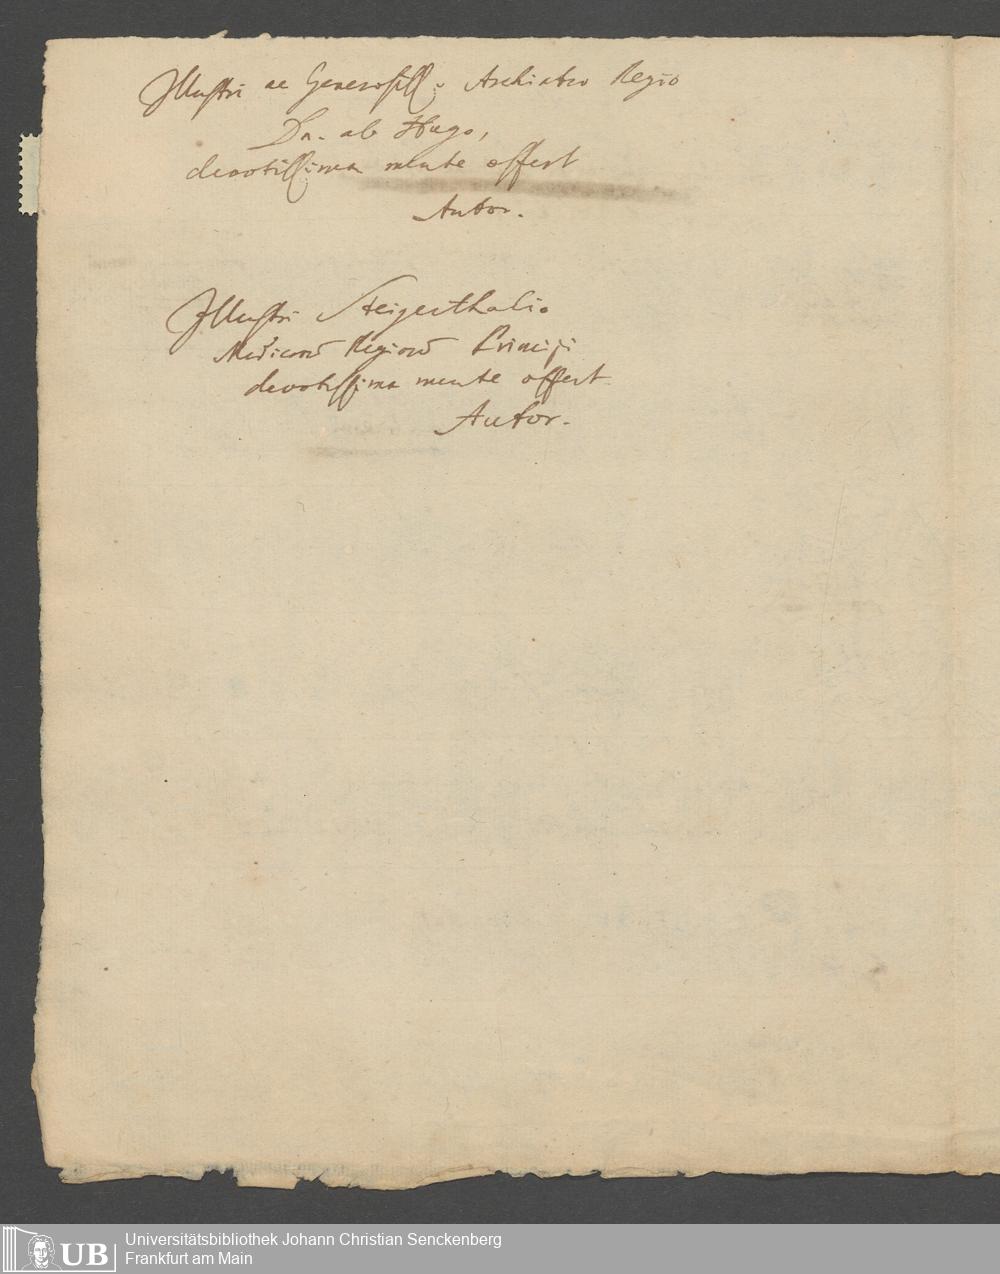 Illustri ac Generosiss. Archiatro Regio
Dn. ab Hugo,
devotissima mente offert
Autor.
Illustri Steigerthalio
Medicorū Regiorū Principi
devotissima mente offert
Autor.
UB
Universitätsbibliothek Johann Christian Senckenberg
Frankfurt am Main